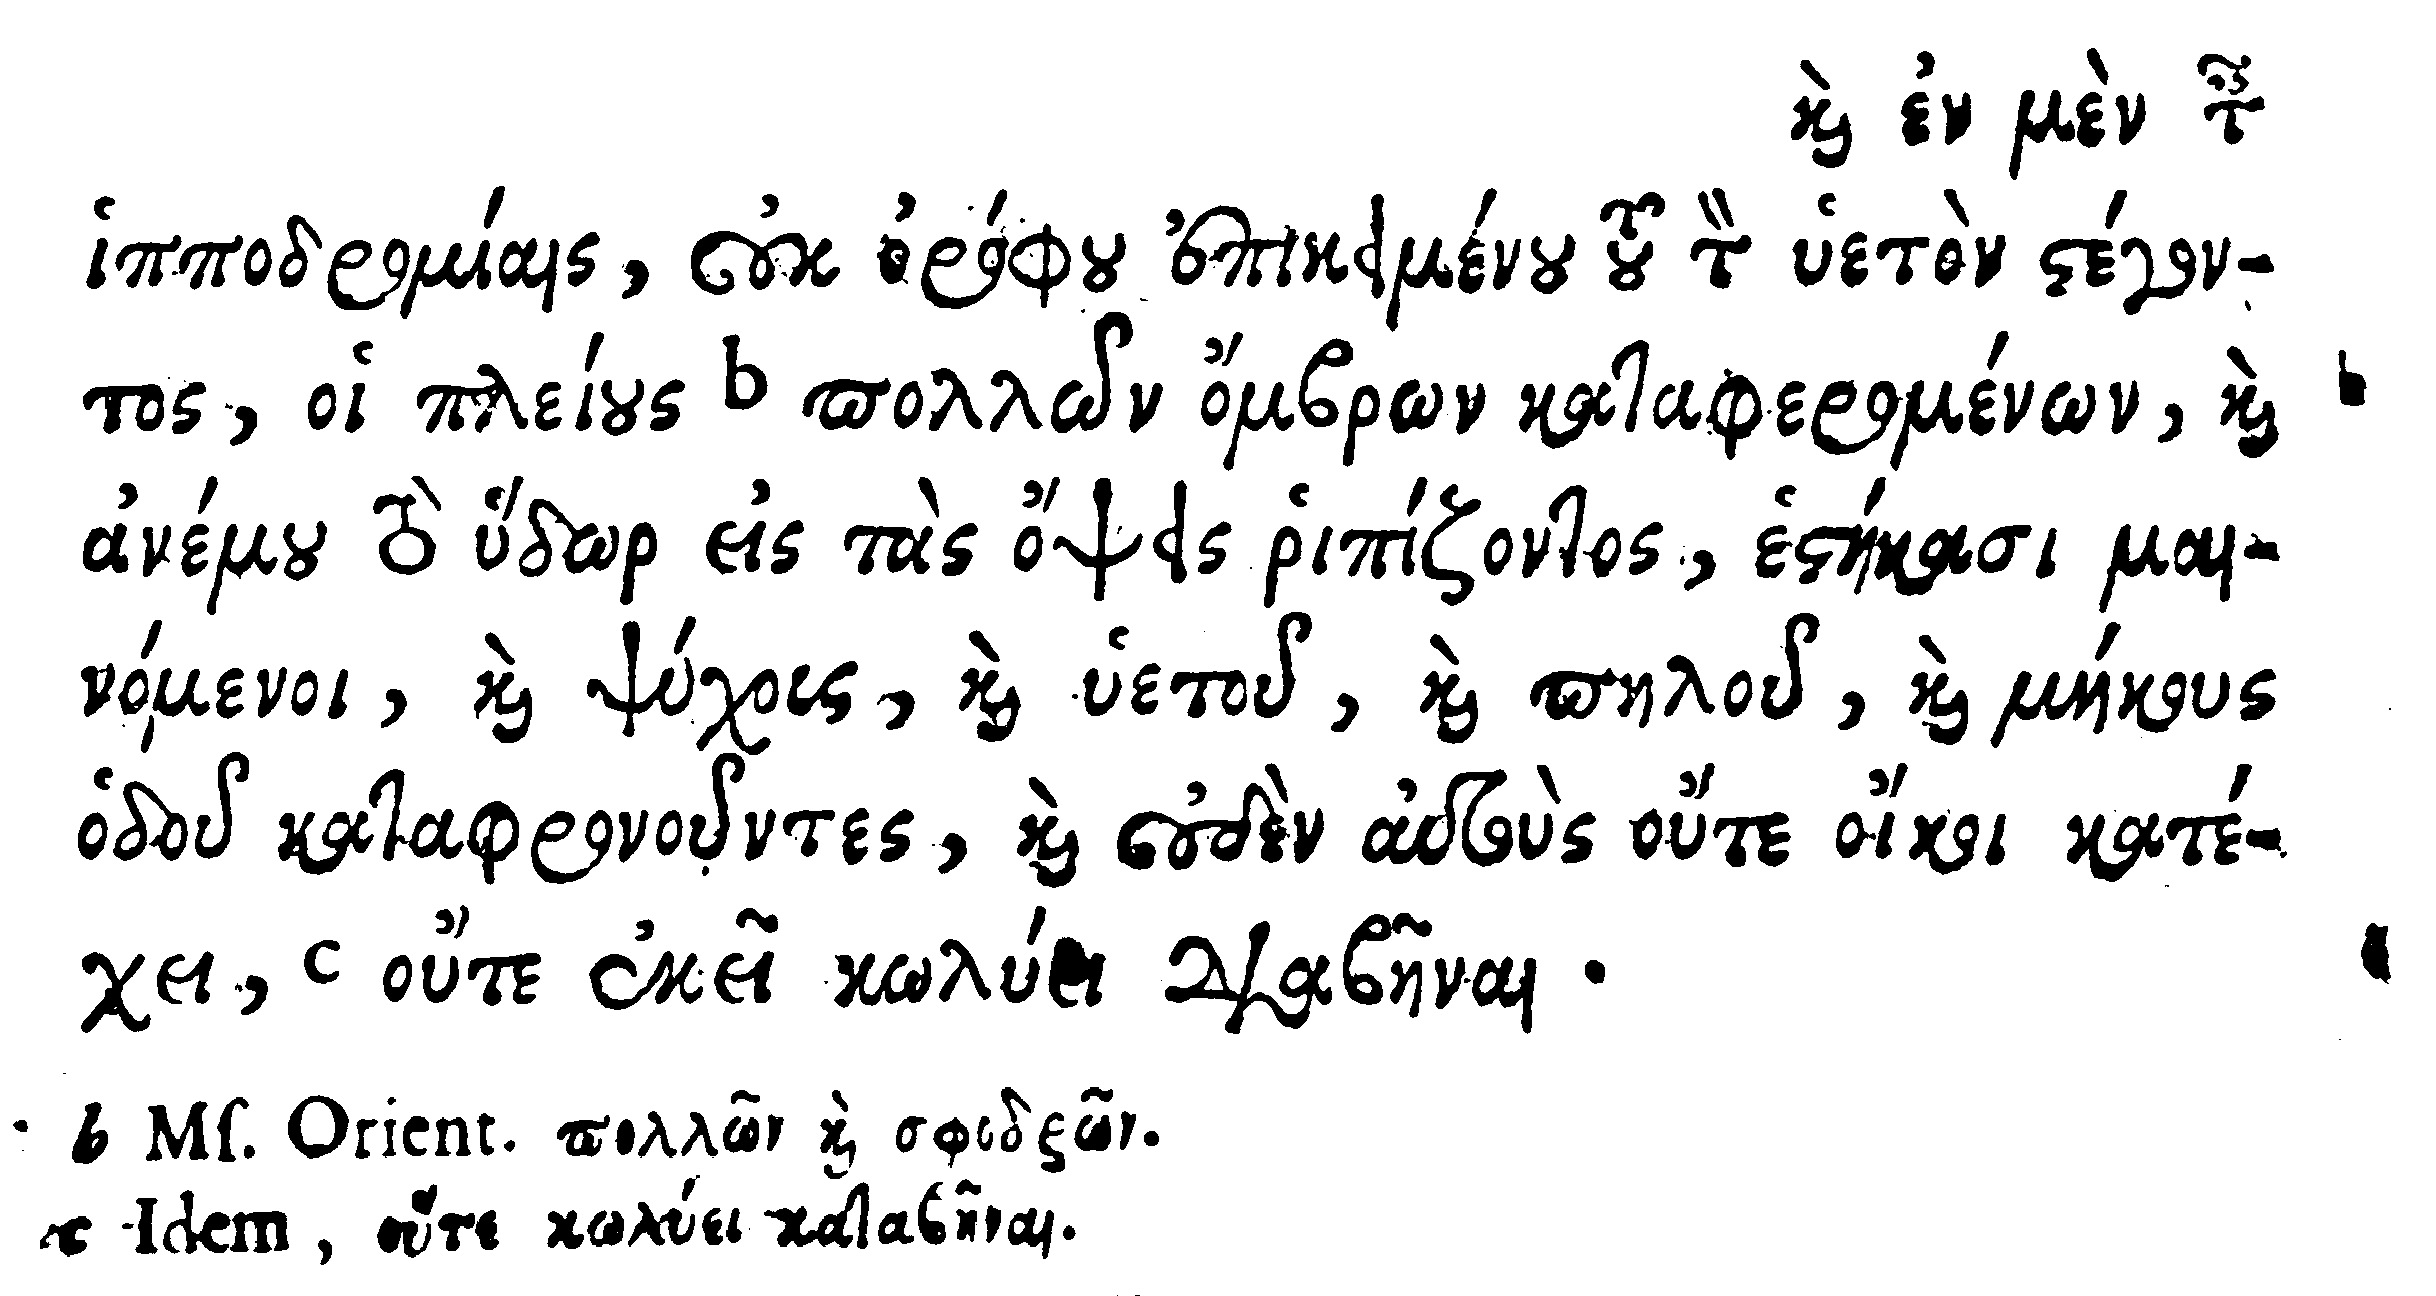 καὶ ἐν μὲν ταῖς
ἱπποδρομίαις, οὐκ ὀρόφου ἐπικειμένου τοῦ τὸν ὑετὸν στέγον-
τος, οἱ πλείους b πολλῶν ὄμβρων καταφερομένων, καὶ b
ἀνέμου τὸ ὕδωρ εἰς τὰς ὄψεις ῥιπίζοντος, ἑστήκασι μαι-
νόμενοι, καὶ ψύχους, καὶ ὑετοῦ, καὶ πηλοῦ, καὶ μήκους
ὁδοῦ καταφρονοῦντες, καὶ οὐδὲν αὐτοὺς οὔτε οἴκοι κατέ-
χει, c οὔτε ἐκεῖ κωλύει διαβῆναι.
b Mſ. Orient. πολλῶν καὶ σφοδρῶν.
c Idem, οὔτε κωλύει καταβῆναι.